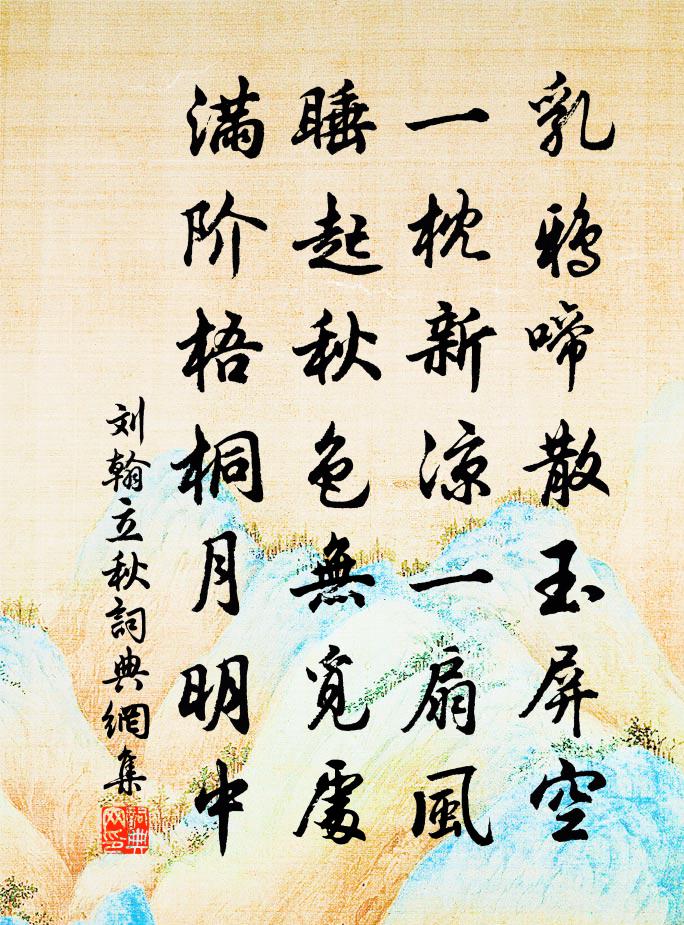 乳鸦啼散玉屏空
一枕新凉一扇風
睡起秋色無覓處
满阶梧桐月明中
刘翰立秋詞典網集
詞典網印